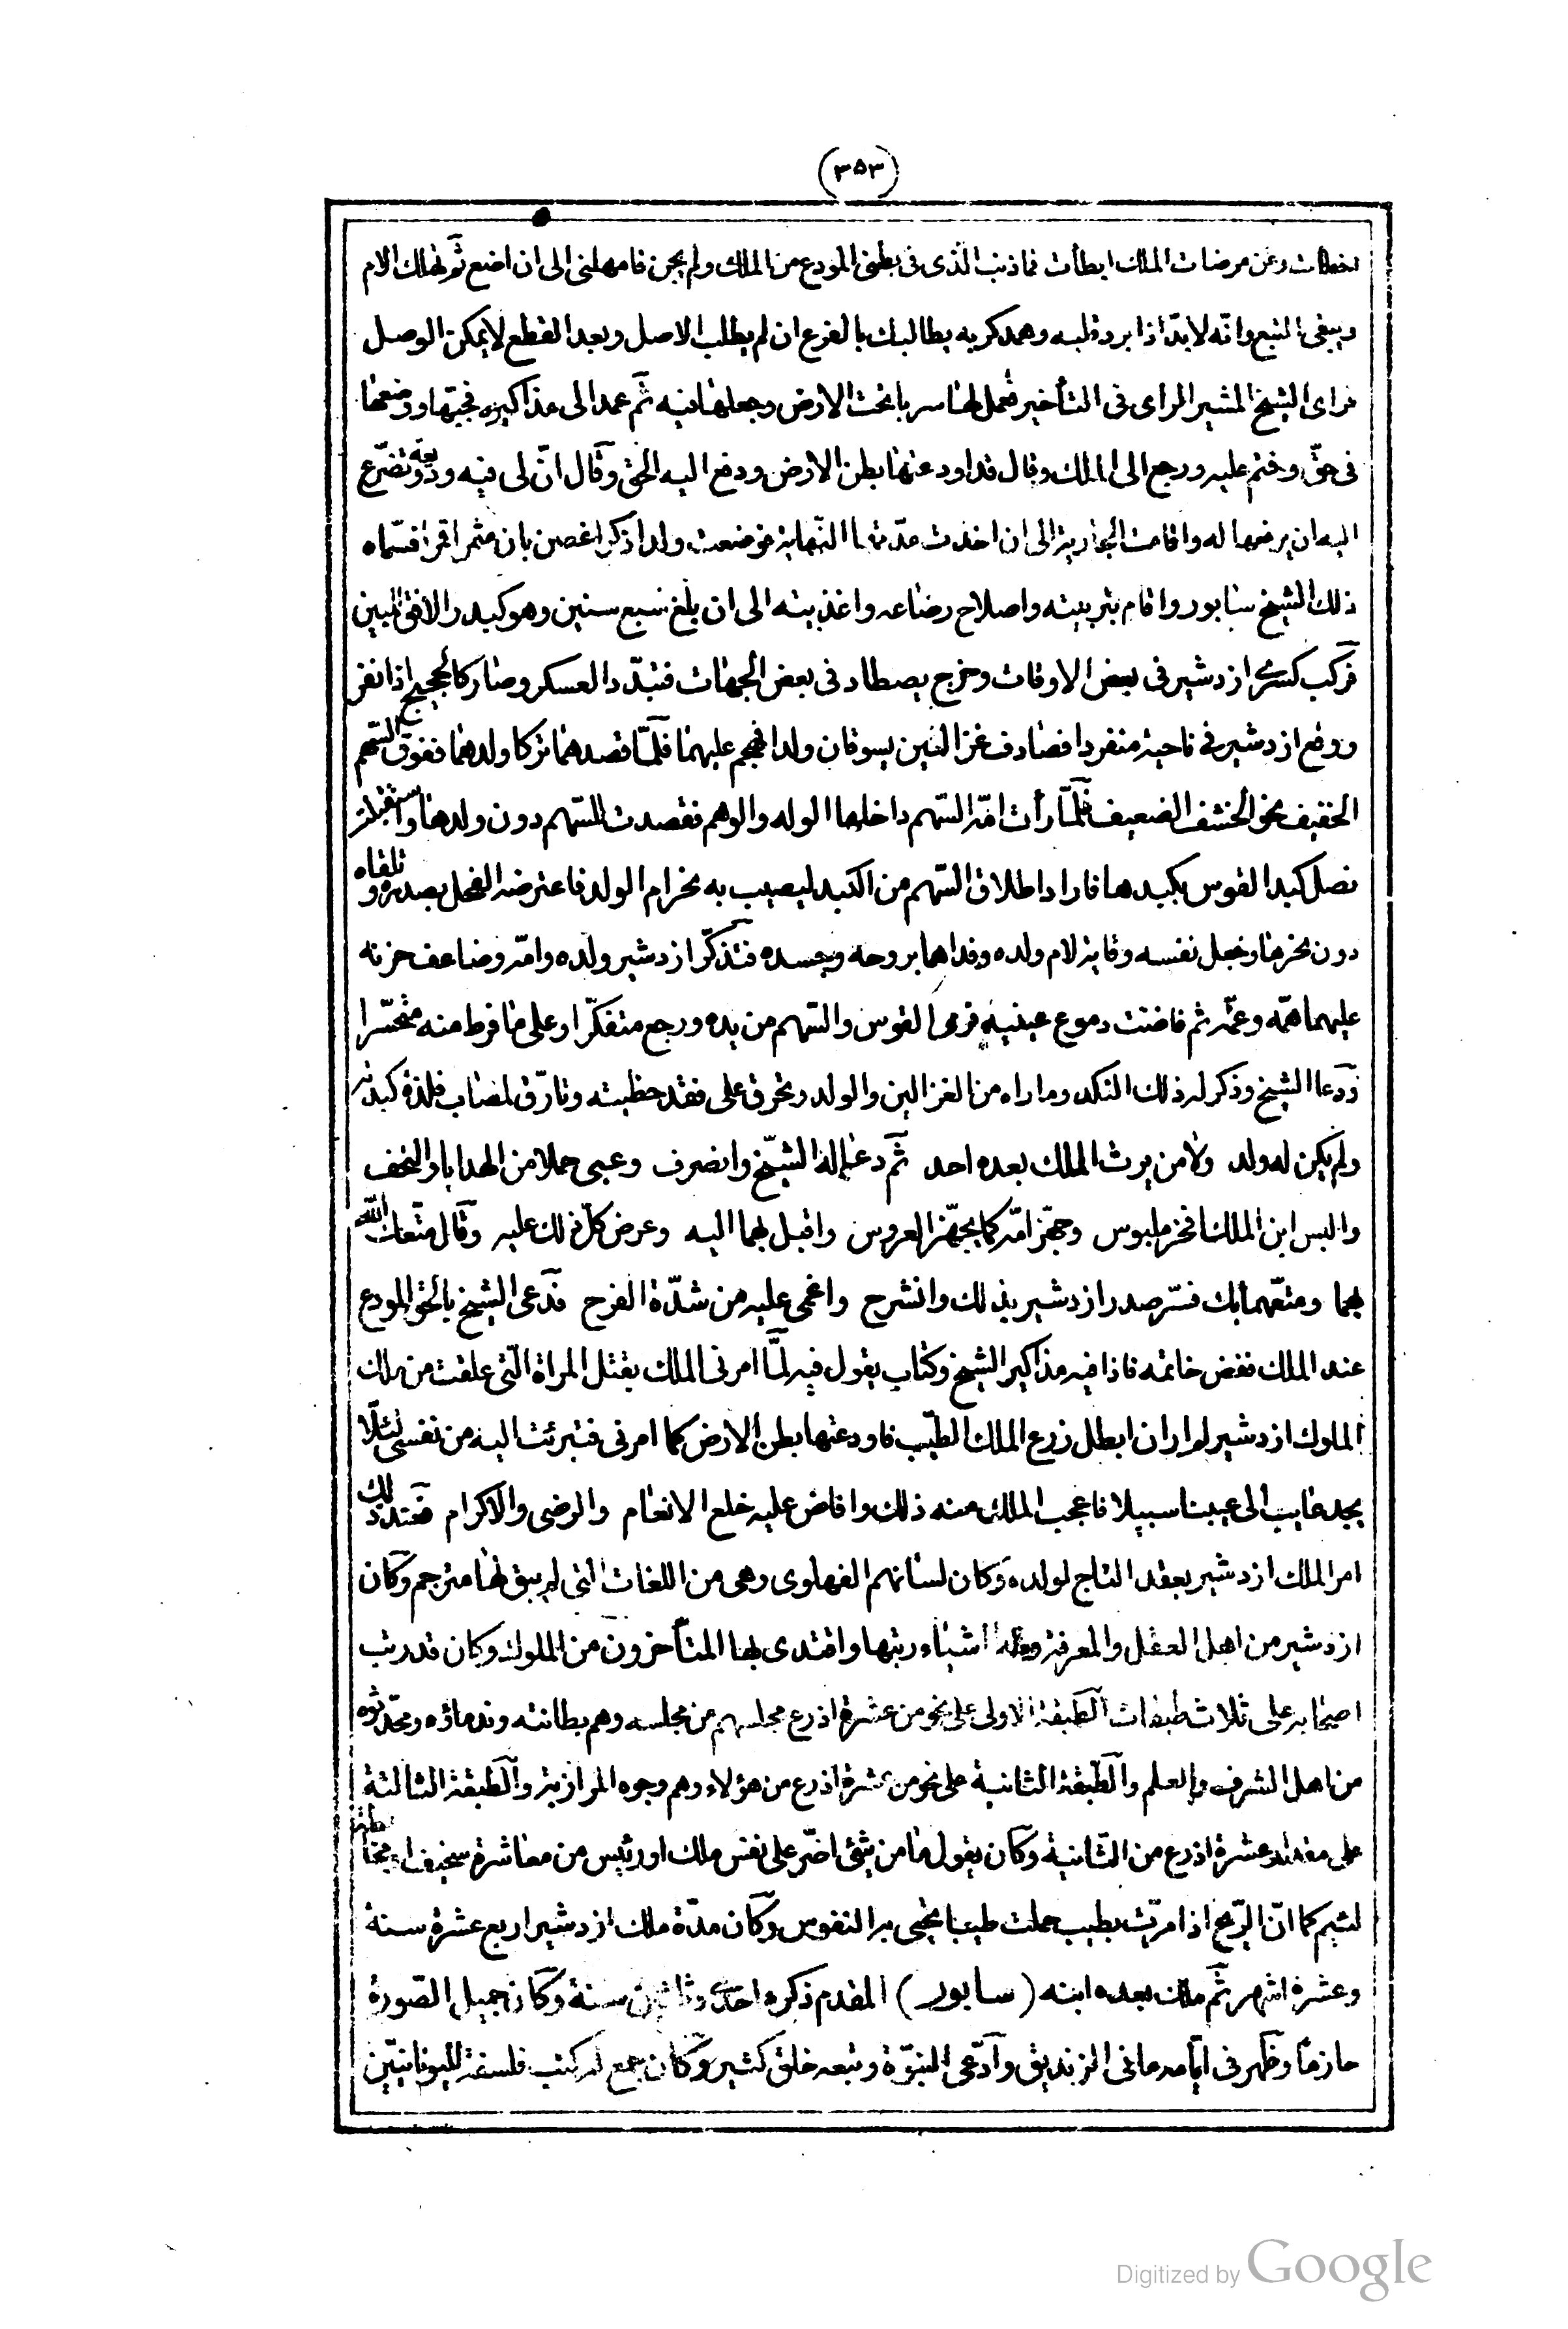 (٣٥٣)
اخطات وعن مرضات الملك ابطأت فما ذنب الذى فى بطنى المودع من الملك ولم يجن فامهلنى الى ان اضع ثم تهلك الام
ويبقى التبع وانّه لابدّ اذا برد قلبه وهمد كربه يطالبك بالفرع ان لم يطلب الاصل وبعد القطع لايمكن الوصل
فراى الشيخ المشير الراى فى التأخير فعمل لها سربا تحت الارض وجعلها فيه ثم عمد الى مذاكيره فجبّها ووضعها
فى حقّ وختم عليه ورجع الى الملك وقال قد اودعتها بطن الارض ودفع اليه الحق وقال انّ لى فيه وديعة وتضرّع
اليه ان يرفعها له واقامت الجارية الى ان اخذت مدّتها النهاية فوضعت ولدا ذكرا غصن بان مثمر اقمرا فسمّاه
ذلك الشيخ سابور واقام بتربيته واصلاح رضاعه واغذيته الى ان بلغ سبع سنين وهو كبدر الافق المبين
فركب كسرى ازدشير فى بعض الاوقات وخرج يصطاد فى بعض الجهات فتبدّد العسكر وصار كالحجيج اذا نفر
ووقع ازدشير فى ناحية منفردا فصادف غزالتين يسوقان ولدا فهجم عليهما فلمّا قصدهما تركا ولدهما ففوّق السّهم
الخفيف نحو الخشف الضعيف فلمّا رأت امّه السّهم داخلها الوله والوهم فقصدت للسّهم دون ولدها واستقبلت
نصل كبد القوس بكبدها فاراد اطلاق السّهم من الكبد ليصيب به نحر ام الولد فاعترضه الفحل بصدره وتلقاه
دون نحرها وجعل نفسه وقاية لام ولده وفداهما بروحه وجسده فتذكّر ازدشير ولده وامّه وضاعف حزنه
عليهما همّه وغمّه ثم فاضت دموع عينيه فرمى القوس والسّهم من يده ورجع متفكّرا وعلى ما فرط منه متحسّرا
ودعا الشيخ وذكر له ذلك النكد وما راه من الغزالين والولد وتحرق على فقد حظيته وتارّق لمصاب فلذة كبدته
ولم يكن له ولد ولا من يرث الملك بعده احد ثم دعا له الشيخ وانصرف وعبى حملا من الهدايا والتحف
والبس ابن الملك افخر ملبوس وجهّز امّه كما يجهّز العروس واقبل بهما اليه وعرض كلّ ذلك عليه وقال متّعك الله
بهما ومتّعهما بك فسرّ صدر ازدشير بذلك وانشرح واغمى عليه من شدّة الفرح فدعى الشيخ بالحق المودع
عند الملك ففض خاتمه فاذا فيه مذاكير الشيخ وكتاب يقول فيه لمّا امرنى الملك بقتل المراة الّتى علقت من ملك
الملوك ازدشير لم ار ان ابطل زرع الملك الطيّب فاودعتها بطن الارض كما امرنى فتبرئت اليه من نفسى لئلّا
يجد عايب الى عيبنا سبيلا فاعجب الملك منه ذلك وافاض عليه خلع الانعام والرضى والاكرام فعند ذلك
امر الملك ازدشير بعقد التاج لولده وكان لسانهم الفهلوى وهى من اللغات التى لم يبق لها مترجم وكان
ازدشير من اهل العقل والمعرفة وله اشياء رتبها واقتدى بها المتأخرون من الملوك وكان قد رتب
اصحابه على ثلاث طبقات الطبقة الاولى على نحو من عشرة اذرع مجلسهم من مجلسه وهم بطانته وندماؤه ومحدّثوه
من اهل الشرف والعلم والطّبقة الثانية على نحو من عشرة اذرع من هؤلاء وهم وجوه المرازبة والطبقة الثالثة
على مقدار عشرة اذرع من الثّانية وكان يقول ما من شئ اضرّ على نفس ملك او رئيس من معاشرة سخيف او مخالطة
لئيم كما انّ الرّيح اذا مرّت بطيب حملت طيبا تحيى به النفوس وكان مدّة ملك ازدشير اربع عشرة سنة
وعشرة اشهر ثم ملك بعده ابنه (سابور) المقدم ذكره احدى وثلاثين سنة وكان جميل الصّورة
حازما وظهر فى ايّامه مانى الزنديق وادّعى النبوّة وتبعه خلق كثير وكان جمع له كتب فلسفة لليونانيّين
Digitized by Google